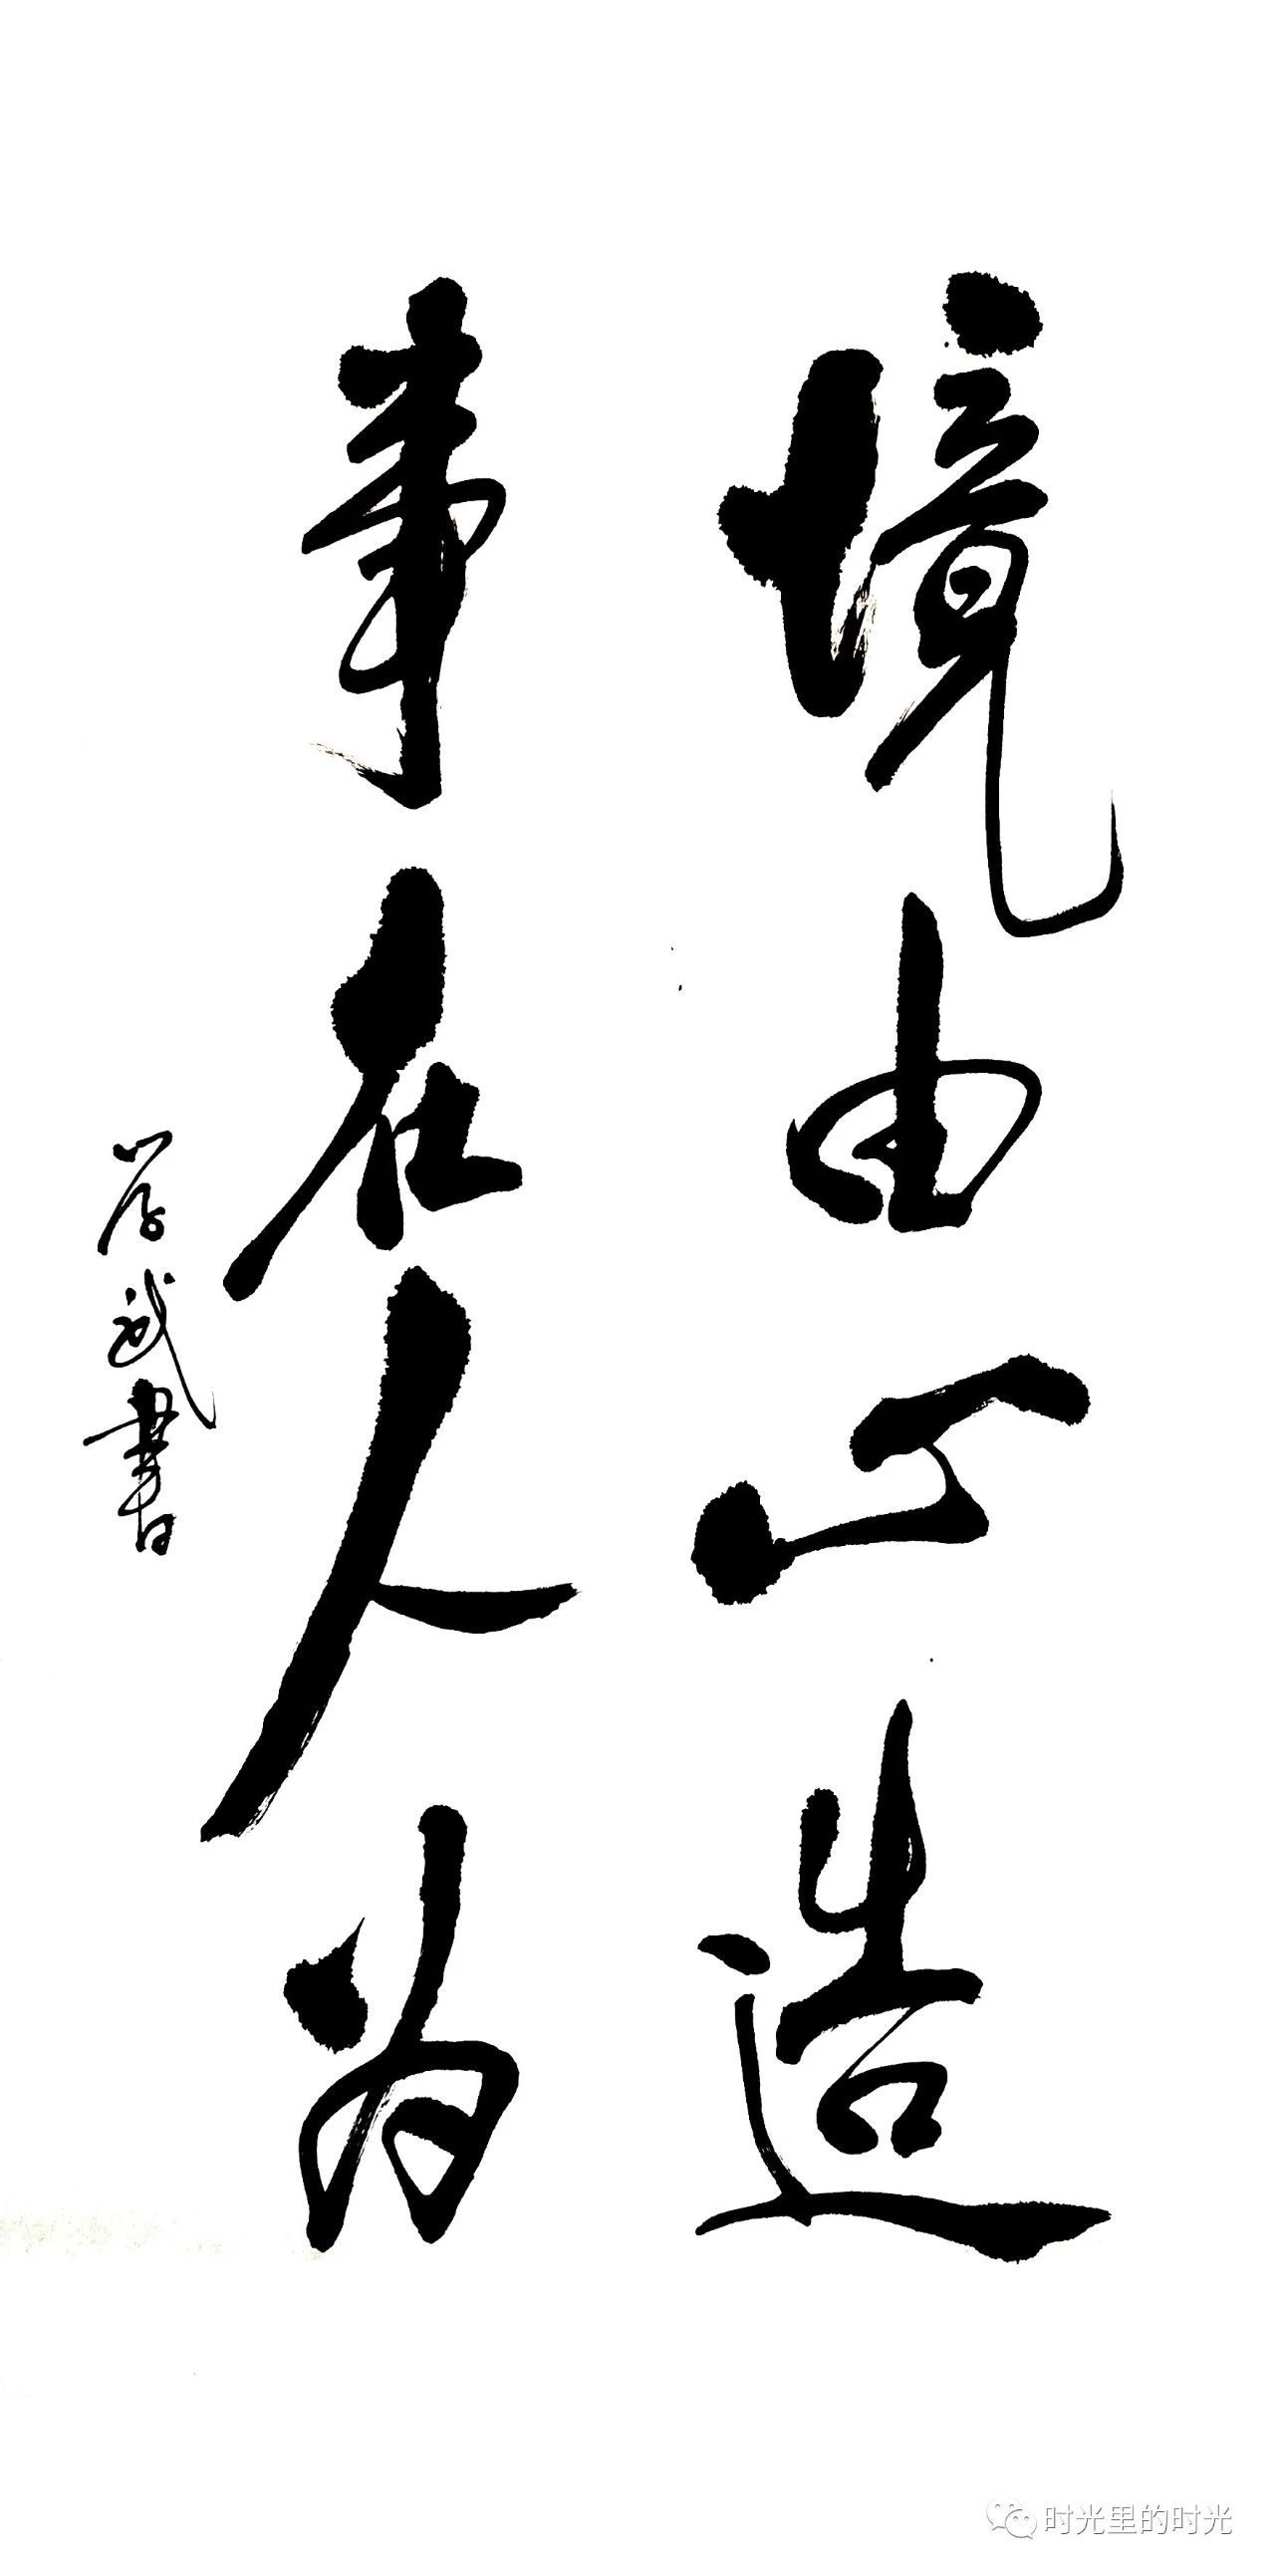 境由心造
事在人为
学武書
时光里的时光